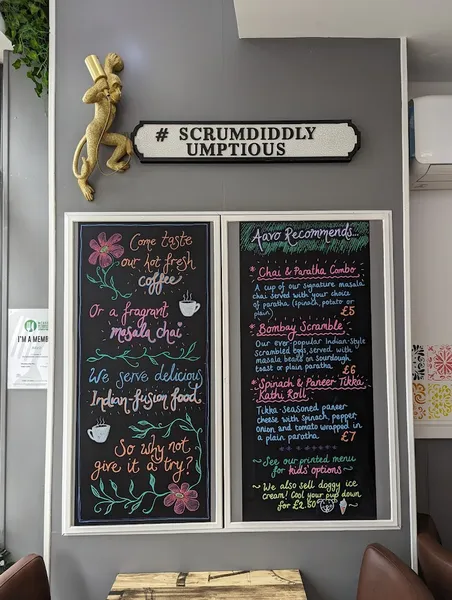 # SCRUMDIDDLY
UMPTIOUS
Come taste
our hot fresh
coffee
Or a fragrant
masala chai
We serve delicious
Indian fusion food.
So why not
give it a try?
Aavo Recommends...
* Chai & Paratha Combo
A cup of our signature masala
chai served with your choice
of paratha (spinach, potato or
plain) £5
* Bombay Scramble
Our ever popular Indian-style
scrambled eggs, served with
masala beans on sourdough
toast or plain paratha. £6
* Spinach & Paneer Tikka
Kathi Roll
Tikka-seasoned paneer
cheese with spinach, pepper,
onion and tomato wrapped in
a plain paratha. £7
~ See our printed menu
for kids' options ~
~ We also sell doggy ice
cream! Cool your pup down
for £2.50
I'M A MEMB